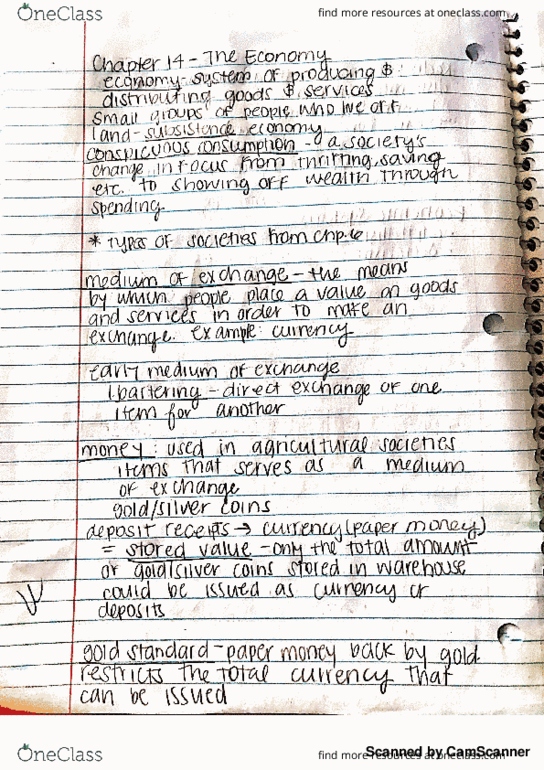 OneClass find more resources at oneclass.com
Chapter 14 - The Economy
economy-system of producing $
distributing goods $ services
small groups of people who live off
land-subsistence economy
conspicuous consumption - a society's
change in focus from thrifting, saving
etc. to showing off wealth through
spending.
* types of societies from
medium of exchange - the means
by which people place a value on goods
and services in order to make an
exchange. example: currency
early medium of exchange
1. bartering - direct exchange of one
item for another
money: used in agricultural societies
items that serves as a medium
of exchange
gold/silver coins
deposit receipts → currency (paper money)
= stored value - only the total amount
of gold/silver coins stored in warehouse
could be issued as currency or
deposits
gold standard - paper money back by gold
restricts the total currency that
can be issued
OneClass find more resources at oneclass.com
Scanned by CamScanner